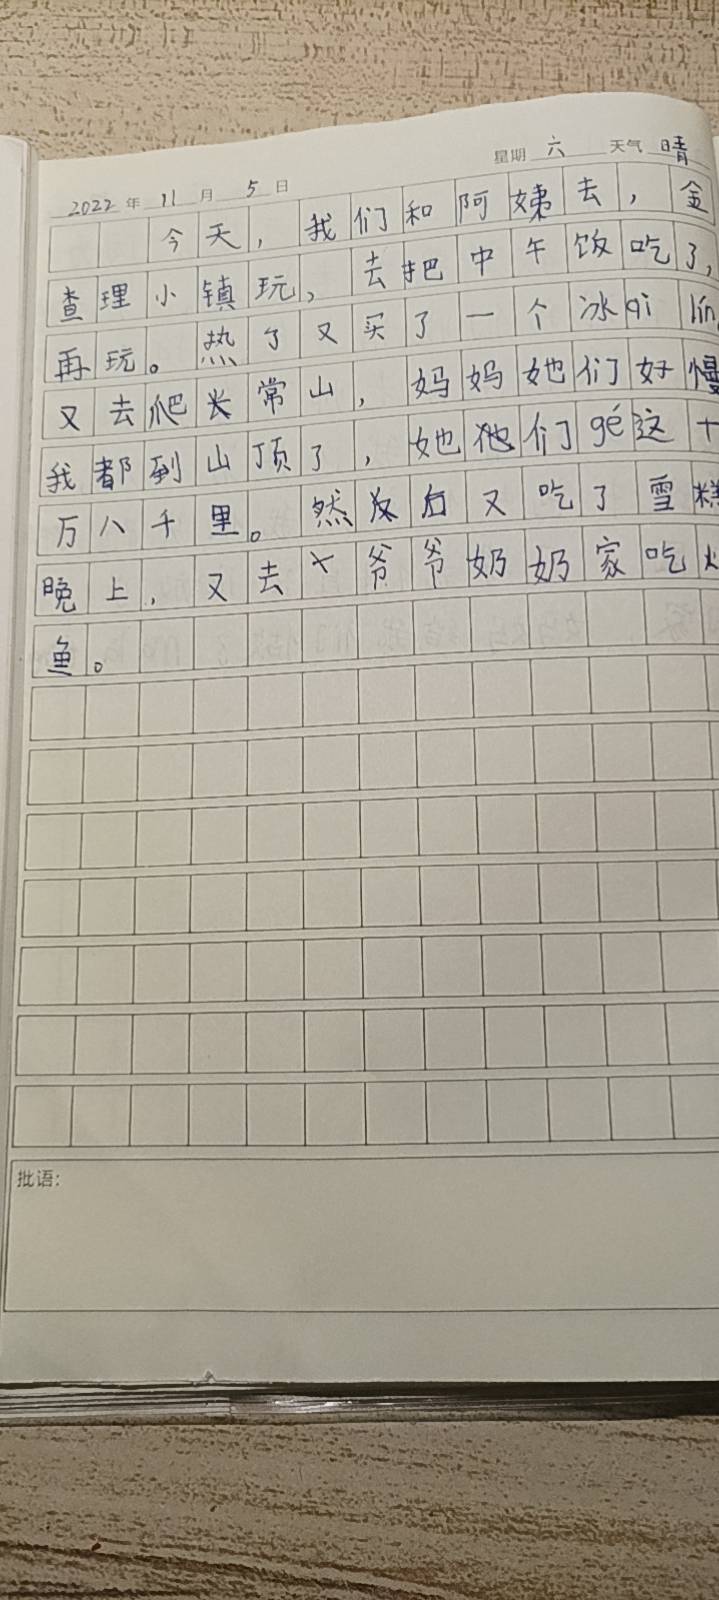 2022 年 11 月 5 日 星期 六 天气 晴
今天，我们和阿姨去，金
查理小镇玩，去把中午饭吃了，
再玩。热了又买了一个冰qi lín
又去爬长常山，妈妈她们好慢
我都到山顶了，她他们gé这十
万八千里。然后又吃了雪糕
晚上，又去爷爷奶奶家吃火
鱼。
批语：